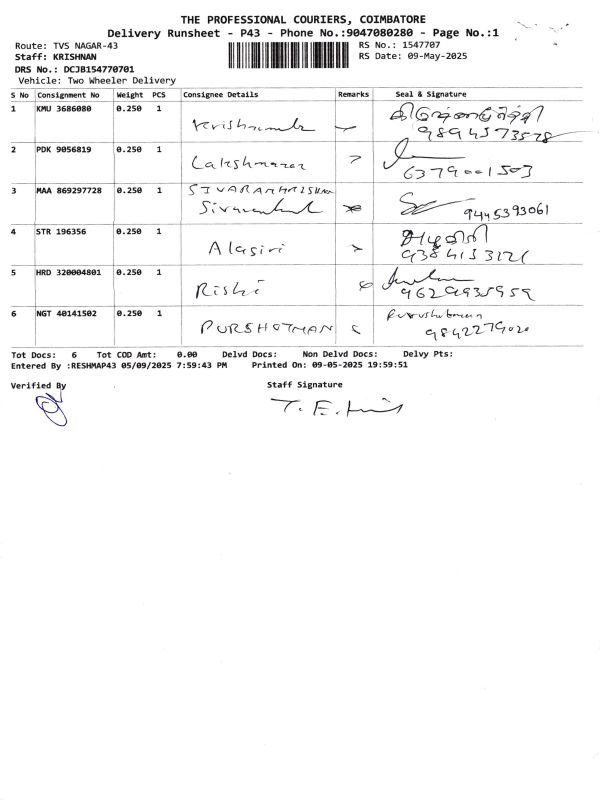 THE PROFESSIONAL COURIERS, COIMBATORE
Delivery Runsheet - P43 - Phone No.:9047080280 - Page No.:1
Route: TVS NAGAR-43 RS No.: 1547707
Staff: KRISHNAN RS Date: 09-May-2025
DRS No.: DCJB154770701
Vehicle: Two Wheeler Delivery
S No Consignment No Weight PCS Consignee Details Remarks Seal & Signature
1 KMU 3686080 0.250 1
9894573578
2 PDK 9056819 0.250 1 Lakshmanan
6379001503
3 MAA 869297728 0.250 1
9445393061
4 STR 196356 0.250 1 Alagiri
5 HRD 320004801 0.250 1 Rishi
9629935959
6 NGT 40141502 0.250 1 PURSHOTMAN
9842279020
Tot Docs: 6 Tot COD Amt: 0.00 Delvd Docs: Non Delvd Docs: Delvy Pts:
Entered By :RESHMAP43 05/09/2025 7:59:43 PM Printed On: 09-05-2025 19:59:51
Verified By Staff Signature